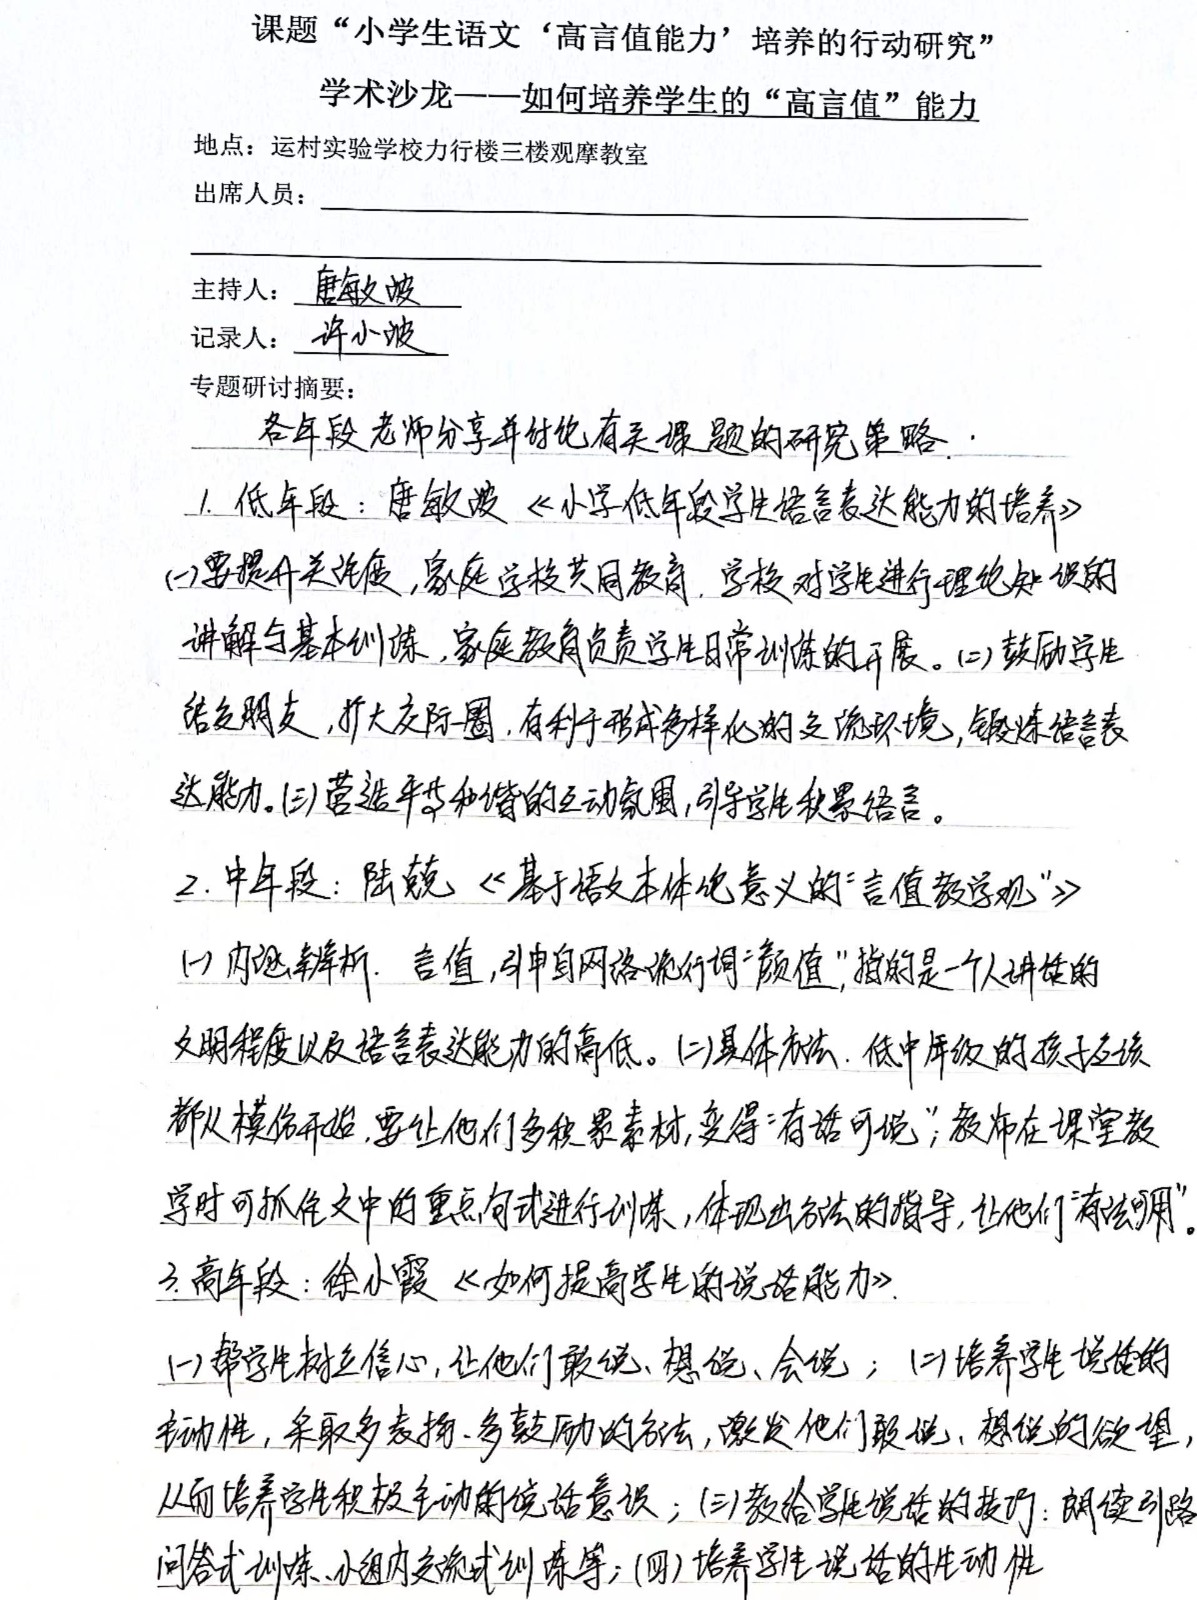 课题“小学生语文‘高言值能力’培养的行动研究”
学术沙龙——如何培养学生的“高言值”能力
地点：运村实验学校力行楼三楼观摩教室
出席人员：
主持人：唐敏波
记录人：许小波
专题研讨摘要：
各年段老师分享并讨论有关课题的研究策略.
1. 低年段：唐敏波《小学低年段学生语言表达能力的培养》
(一)要提升关注度，家庭学校共同教育. 学校对学生进行理论知识的
讲解与基本训练，家庭教育负责学生日常训练的开展。(二)鼓励学生
结交朋友，扩大交际圈，有利于形成多样化的交流环境，锻炼语言表
达能力。(三)营造平等和谐的互动氛围，引导学生积累语言。
2. 中年段：陆兢《基于语文本体论意义的“言值教学观”》
(一)内涵辨析. 言值，引申自网络流行词“颜值”，指的是一个人讲话的
文明程度以及语言表达能力的高低。(二)具体方法. 低中年级的孩子应该
都从模仿开始，要让他们多积累素材，变得“有话可说”；教师在课堂教
学时可抓住文中的重点句式进行训练，体现出方法的指导，让他们“有法可用”。
3. 高年段：徐小霞《如何提高学生的说话能力》.
(一)帮学生树立信心，让他们敢说、想说、会说；(二)培养学生说话的
主动性，采取多表扬、多鼓励的方法，激发他们敢说、想说的欲望，
从而培养学生积极主动的说话意识；(三)教给学生说话的技巧：朗读引路
问答式训练、小组内交流式训练等；(四)培养学生说话的生动性